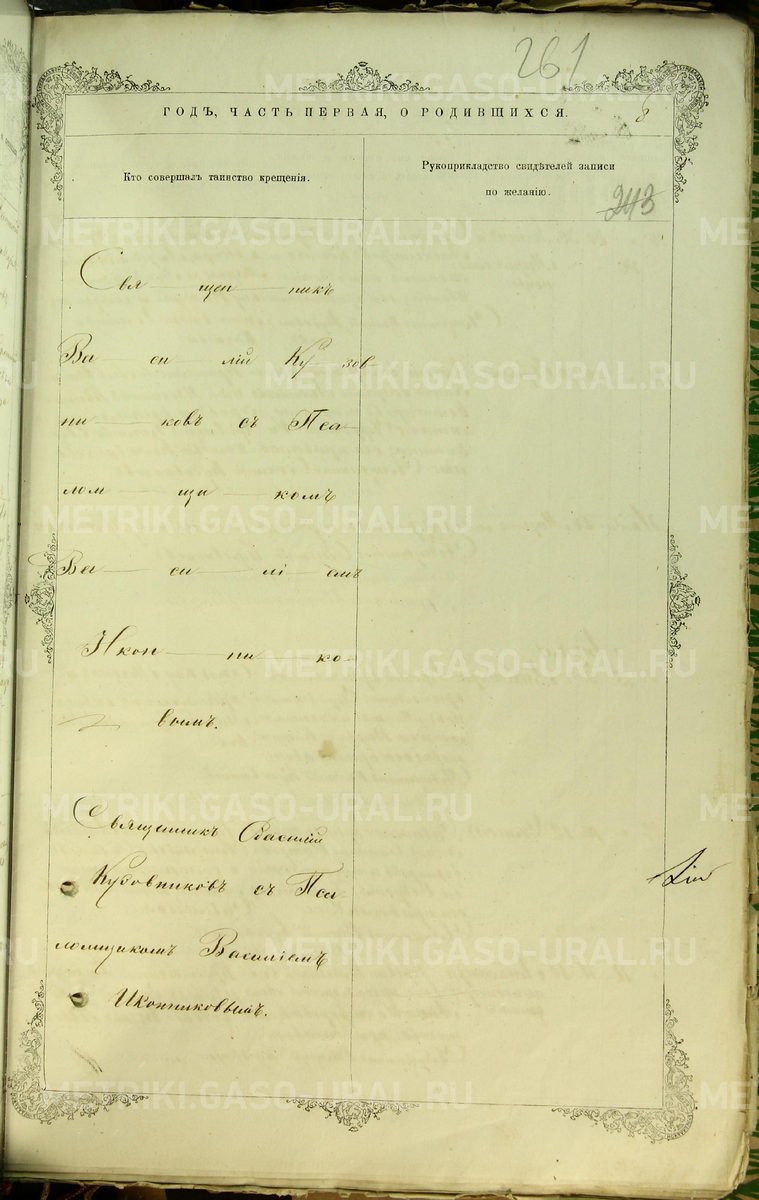 261
ГОДЪ, ЧАСТЬ ПЕРВАЯ, О РОДИВШИХСЯ.
8
Кто совершалъ таинство крещенія.
Рукоприкладство свидѣтелей записи
по желанію.
243
Свя — щен — никъ
Ва — си — лій Ку — зов
ни — ковъ съ Пса —
лом — щи — комъ
Ва — си — лі — емъ
Икон — ни — ко —
вымъ.
Священникъ Василій
Кузовниковъ съ Пса
ломщикомъ Василіемъ
Иконниковымъ.
METRIKI.GASO-URAL.RU